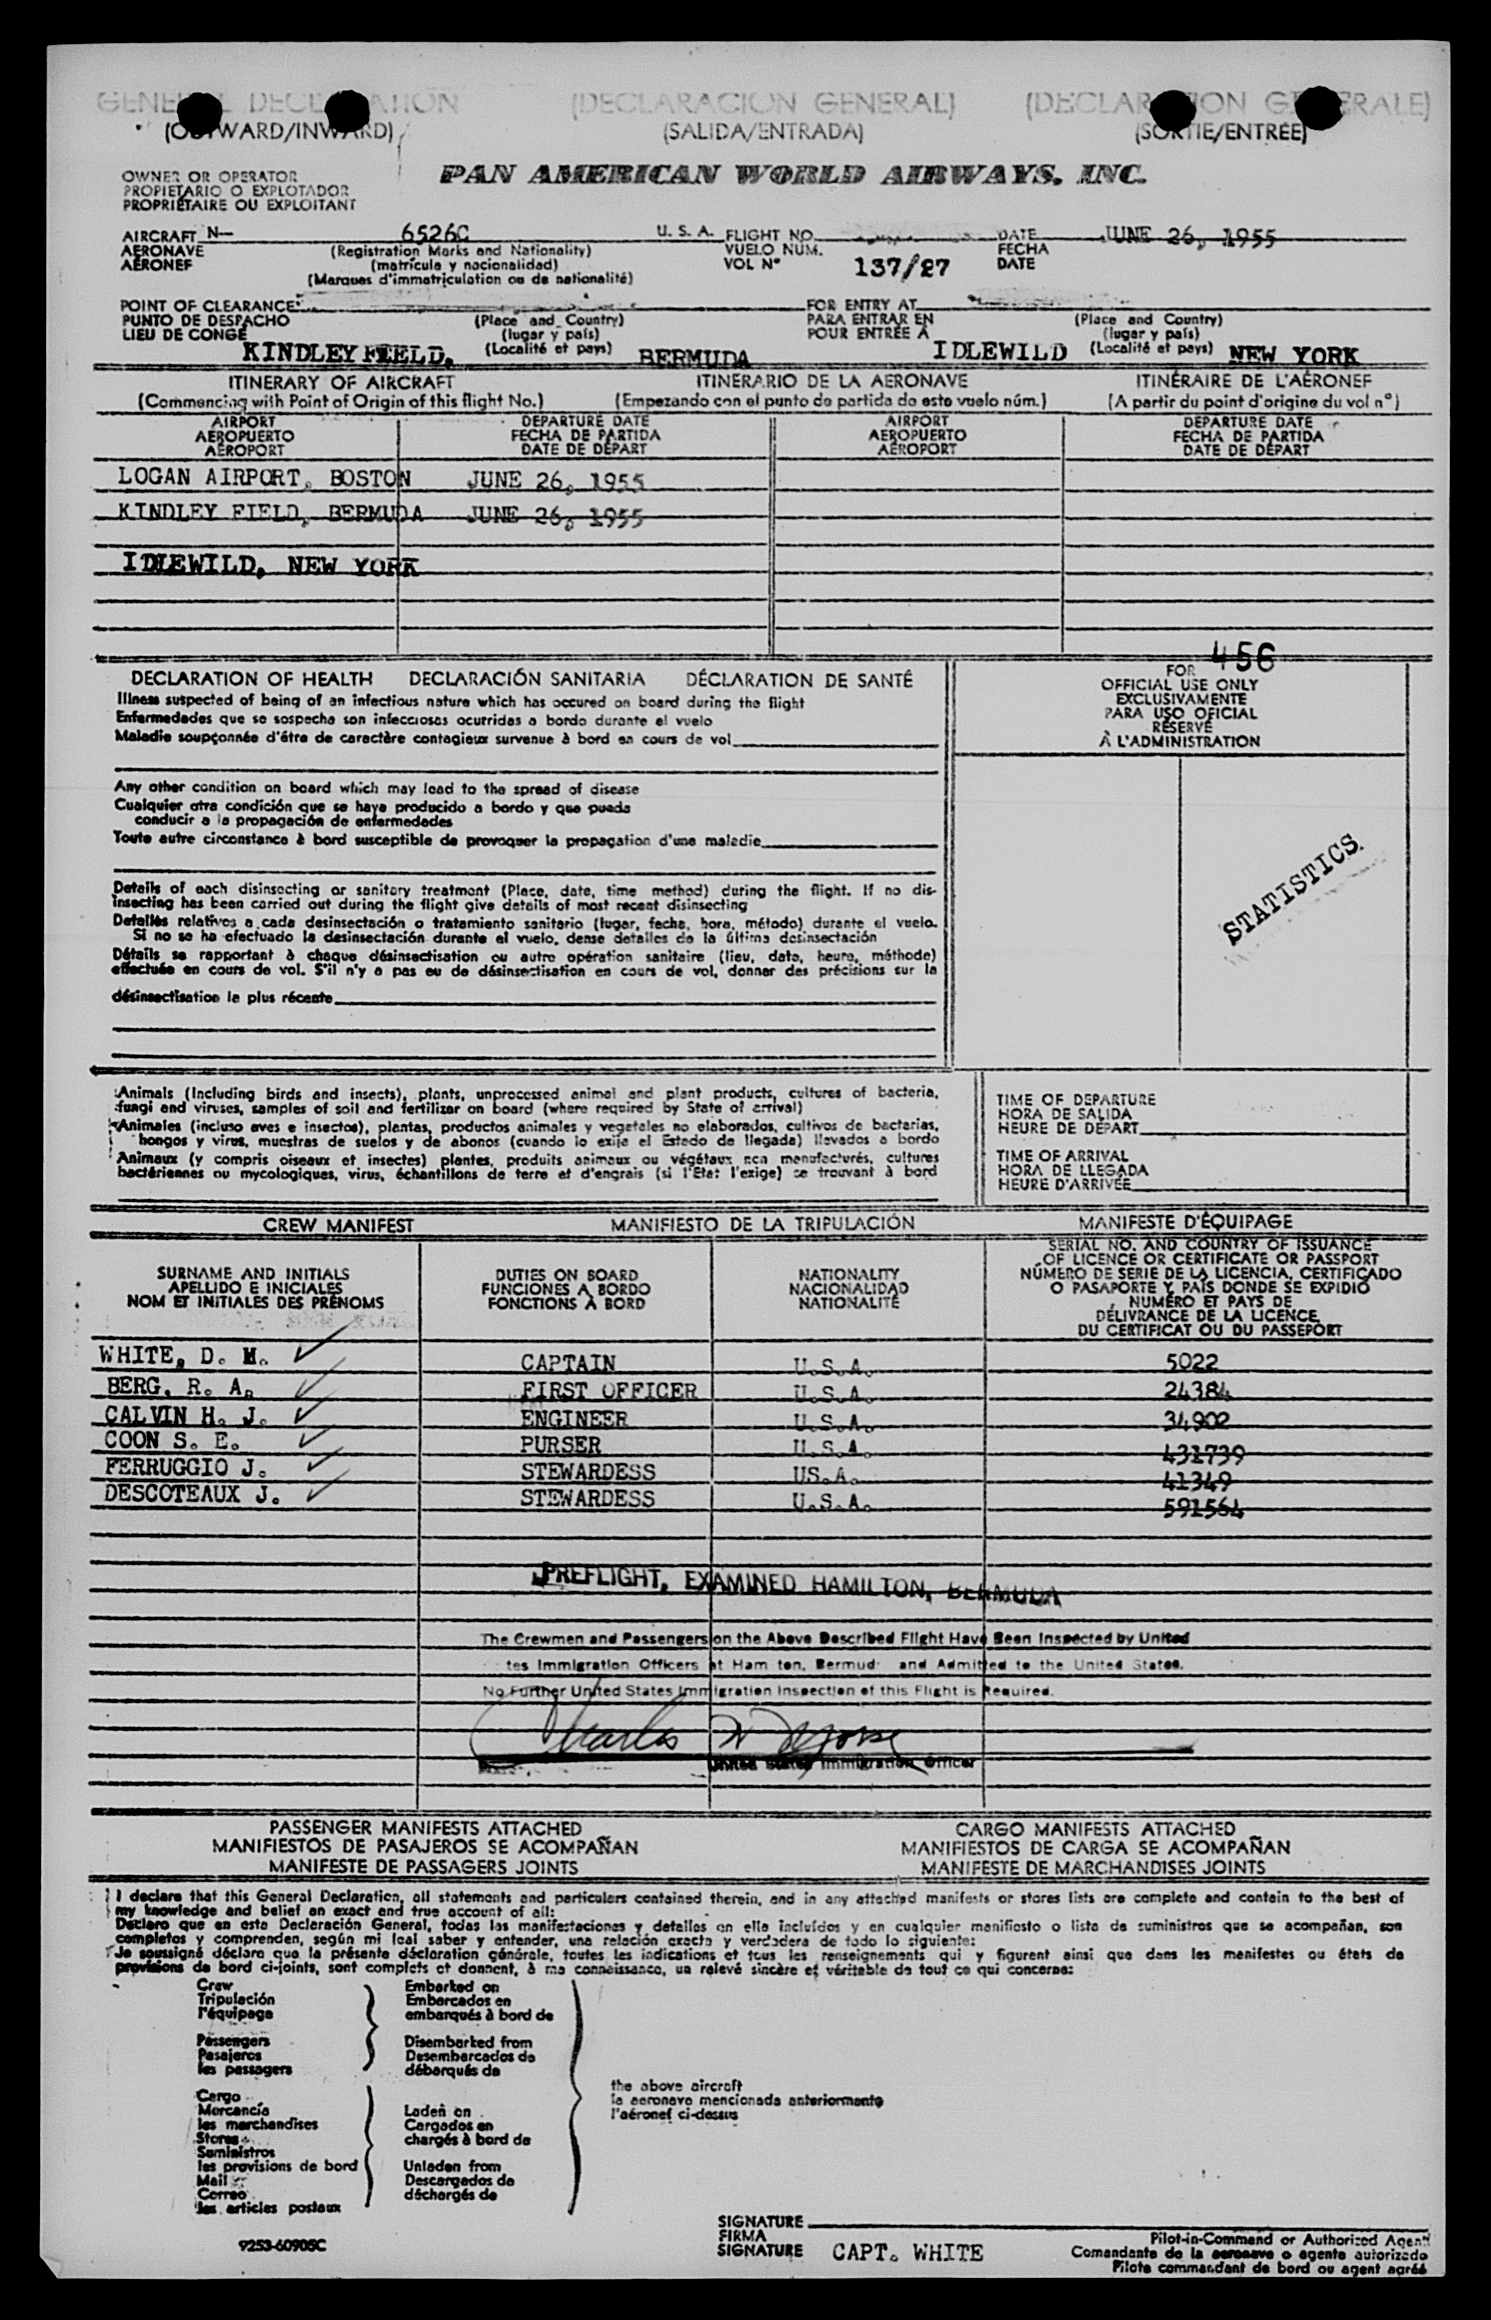 GENERAL DECLARATION (DECLARACION GENERAL) (DECLARATION GENERALE)
(OUTWARD/INWARD) (SALIDA/ENTRADA) (SORTIE/ENTRÉE)
OWNER OR OPERATOR
PROPIETARIO O EXPLOTADOR
PROPRIÉTAIRE OU EXPLOITANT
PAN AMERICAN WORLD AIRWAYS, INC.
AIRCRAFT N— 6526C U. S. A. FLIGHT NO. DATE JUNE 26, 1955
AERONAVE (Registration Marks and Nationality) VUELO NUM. FECHA
AÉRONEF (matrícula y nacionalidad) VOL Nº 137/27 DATE
(Marques d'immatriculation ou de nationalité)
POINT OF CLEARANCE: FOR ENTRY AT
PUNTO DE DESPACHO (Place and Country) PARA ENTRAR EN (Place and Country)
LIEU DE CONGÉ (lugar y país) POUR ENTRÉE À (lugar y país)
KINDLEY FIELD, (Localité et pays) BERMUDA IDLEWILD (Localité et pays) NEW YORK
ITINERARY OF AIRCRAFT ITINERARIO DE LA AERONAVE ITINÉRAIRE DE L'AÉRONEF
(Commencing with Point of Origin of this flight No.) (Empezando con el punto de partida de este vuelo núm.) (A partir du point d'origine du vol nº)
AIRPORT DEPARTURE DATE AIRPORT DEPARTURE DATE
AEROPUERTO FECHA DE PARTIDA AEROPUERTO FECHA DE PARTIDA
AÉROPORT DATE DE DÉPART AÉROPORT DATE DE DÉPART
LOGAN AIRPORT, BOSTON JUNE 26, 1955
KINDLEY FIELD, BERMUDA JUNE 26, 1955
IDLEWILD, NEW YORK
456
DECLARATION OF HEALTH DECLARACIÓN SANITARIA DÉCLARATION DE SANTÉ
Illness suspected of being of an infectious nature which has occured on board during the flight
Enfermedades que se sospecha son infecciosas ocurridas a bordo durante el vuelo
Maladie soupçonnée d'être de caractère contagieux survenue à bord en cours de vol
FOR
OFFICIAL USE ONLY
EXCLUSIVAMENTE
PARA USO OFICIAL
RÉSERVÉ
À L'ADMINISTRATION
Any other condition on board which may lead to the spread of disease
Cualquier otra condición que se haya producido a bordo y que pueda
conducir a la propagación de enfermedades
Toute autre circonstance à bord susceptible de provoquer la propagation d'une maladie
STATISTICS.
Details of each disinsecting or sanitary treatment (Place, date, time method) during the flight. If no dis-
insecting has been carried out during the flight give details of most recent disinsecting
Detalles relativos a cada desinsectación o tratamiento sanitario (lugar, fecha, hora, método) durante el vuelo.
Si no se ha efectuado la desinsectación durante el vuelo, dense detalles de la última desinsectación
Détails se rapportant à chaque désinsectisation ou autre opération sanitaire (lieu, date, heure, méthode)
effectuée en cours de vol. S'il n'y a pas eu de désinsectisation en cours de vol, donner des précisions sur la
désinsectisation la plus récente
Animals (Including birds and insects), plants, unprocessed animal and plant products, cultures of bacteria,
fungi and viruses, samples of soil and fertilizer on board (where required by State of arrival)
Animales (incluso aves e insectos), plantas, productos animales y vegetales no elaborados, cultivos de bacterias,
hongos y virus, muestras de suelos y de abonos (cuando lo exija el Estado de llegada) llevados a bordo
Animaux (y compris oiseaux et insectes) plantes, produits animaux ou végétaux non manufacturés, cultures
bactériennes ou mycologiques, virus, échantillons de terre et d'engrais (si l'Etat l'exige) se trouvant à bord
TIME OF DEPARTURE
HORA DE SALIDA
HEURE DE DÉPART
TIME OF ARRIVAL
HORA DE LLEGADA
HEURE D'ARRIVÉE
CREW MANIFEST MANIFIESTO DE LA TRIPULACIÓN MANIFESTE D'ÉQUIPAGE
SURNAME AND INITIALS
APELLIDO E INICIALES
NOM ET INITIALES DES PRÉNOMS
DUTIES ON BOARD
FUNCIONES A BORDO
FONCTIONS À BORD
NATIONALITY
NACIONALIDAD
NATIONALITÉ
SERIAL NO. AND COUNTRY OF ISSUANCE
OF LICENCE OR CERTIFICATE OR PASSPORT
NÚMERO DE SERIE DE LA LICENCIA, CERTIFICADO
O PASAPORTE Y PAÍS DONDE SE EXPIDIÓ
NUMÉRO ET PAYS DE
DÉLIVRANCE DE LA LICENCE,
DU CERTIFICAT OU DU PASSEPORT
WHITE, D. M. CAPTAIN U.S.A. 5022
BERG, R. A. FIRST OFFICER U.S.A. 24384
CALVIN H. J. ENGINEER U.S.A. 34902
COON S. E. PURSER U.S.A. 431739
FERRUGGIO J. STEWARDESS US.A. 41349
DESCOTEAUX J. STEWARDESS U.S.A. 591564
PREFLIGHT, EXAMINED HAMILTON, BERMUDA
The Crewmen and Passengers on the Above Described Flight Have Been Inspected by United
tes Immigration Officers at Ham ton, Bermud and Admitted to the United States.
No Further United States Immigration Inspection of this Flight is Required.
Charles W
United States Immigration Officer
PASSENGER MANIFESTS ATTACHED CARGO MANIFESTS ATTACHED
MANIFIESTOS DE PASAJEROS SE ACOMPAÑAN MANIFIESTOS DE CARGA SE ACOMPAÑAN
MANIFESTE DE PASSAGERS JOINTS MANIFESTE DE MARCHANDISES JOINTS
I declare that this General Declaration, all statements and particulars contained therein, and in any attached manifests or stores lists are complete and contain to the best of
my knowledge and belief an exact and true account of all:
Declaro que en esta Declaración General, todas las manifestaciones y detalles en ella incluídos y en cualquier manifiesto o lista de suministros que se acompañan, son
completos y comprenden, según mi leal saber y entender, una relación exacta y verdadera de todo lo siguiente:
Je soussigné déclare que la présente déclaration générale, toutes les indications et tous les renseignements qui y figurent ainsi que dans les manifestes ou états de
provisions de bord ci-joints, sont complets et donnent, à ma connaissance, un relevé sincère et véritable de tout ce qui concerne:
Crew Embarked on
Tripulación Embarcados en
l'équipage embarqués à bord de
Passengers Disembarked from
Pasajeros Desembarcados de
les passagers débarqués de
the above aircraft
la aeronave mencionada anteriormente
l'aéronef ci-dessus
Cargo
Mercancía Laden on
les marchandises Cargados en
Stores chargés à bord de
Suministros
les provisions de bord Unladen from
Mail Descargados de
Correo déchargés de
les articles postaux
SIGNATURE
FIRMA Pilot-in-Command or Authorized Agent
SIGNATURE CAPT. WHITE Comandante de la aeronave o agente autorizado
Pilote commandant de bord ou agent agréé
9253-60905C